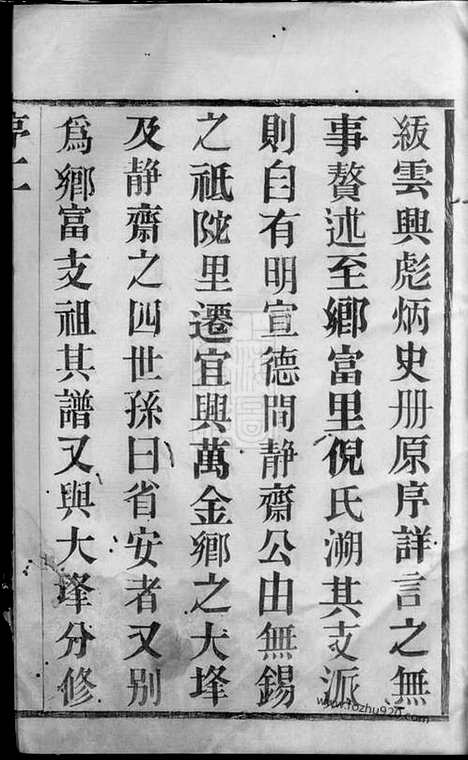 級雲興彪炳史册原序詳言之無
事贅述至鄉富里倪氏溯其支派
則自有明宣德間静齋公由無錫
之祗陀里遷宜興萬金鄉之大墿
及静齋之四世孫曰省安者又别
為鄉富支祖其譜又與大墿分修
www.fozhu920.com